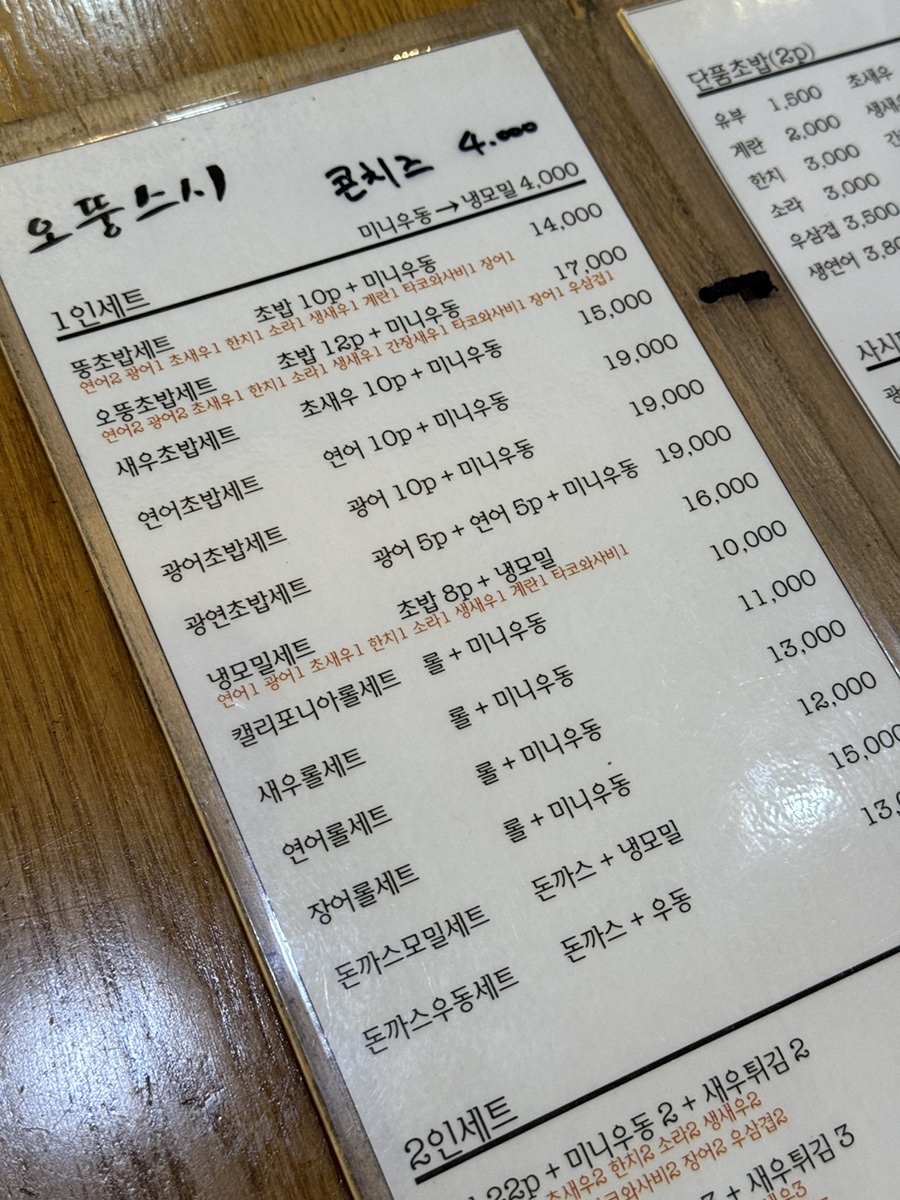 오뚱스시 콘치즈 4.000
미니우동→냉모밀 4,000
1인세트
뚱초밥세트 초밥 10p + 미니우동 14,000
연어2 광어1 초새우1 한치1 소라1 생새우1 계란1 타코와사비1 장어1
오뚱초밥세트 초밥 12p + 미니우동 17,000
연어2 광어2 초새우1 한치1 소라1 생새우1 간장새우1 타코와사비1 장어1 우삼겹1
새우초밥세트 초새우 10p + 미니우동 15,000
연어초밥세트 연어 10p + 미니우동 19,000
광어초밥세트 광어 10p + 미니우동 19,000
광연초밥세트 광어 5p + 연어 5p + 미니우동 19,000
냉모밀세트 초밥 8p + 냉모밀 16,000
연어1 광어1 초새우1 한치1 소라1 생새우1 계란1 타코와사비1
캘리포니아롤세트 롤 + 미니우동 10,000
새우롤세트 롤 + 미니우동 11,000
연어롤세트 롤 + 미니우동 13,000
장어롤세트 롤 + 미니우동 12,000
돈까스모밀세트 돈까스 + 냉모밀 15,000
돈까스우동세트 돈까스 + 우동
2인세트
22p + 미니우동 2 + 새우튀김 2
초새우2 한치2 소라2 생새우2
타코와사비2 장어2 우삼겹2
+ 새우튀김 3
단품초밥(2p)
유부 1,500 초새우
계란 2,000
한치 3,000
소라 3,000
우삼겹 3,500
생연어